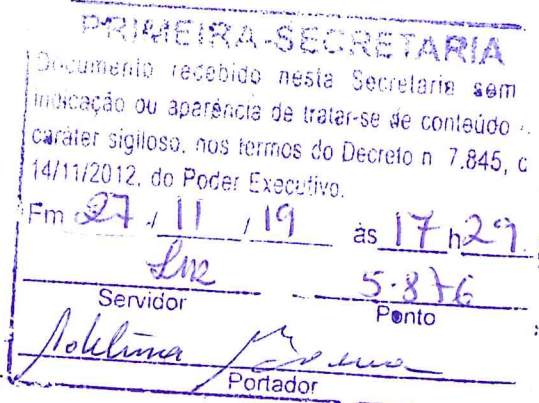 PRIMEIRA-SECRETARIA
Documento recebido nesta Secretaria sem
indicação ou aparência de tratar-se de conteúdo
caráter sigiloso, nos termos do Decreto n 7.845, d
14/11/2012, do Poder Executivo.
Em 27 / 11 / 19 às 17 h 29
5.876
Servidor Ponto
Portador